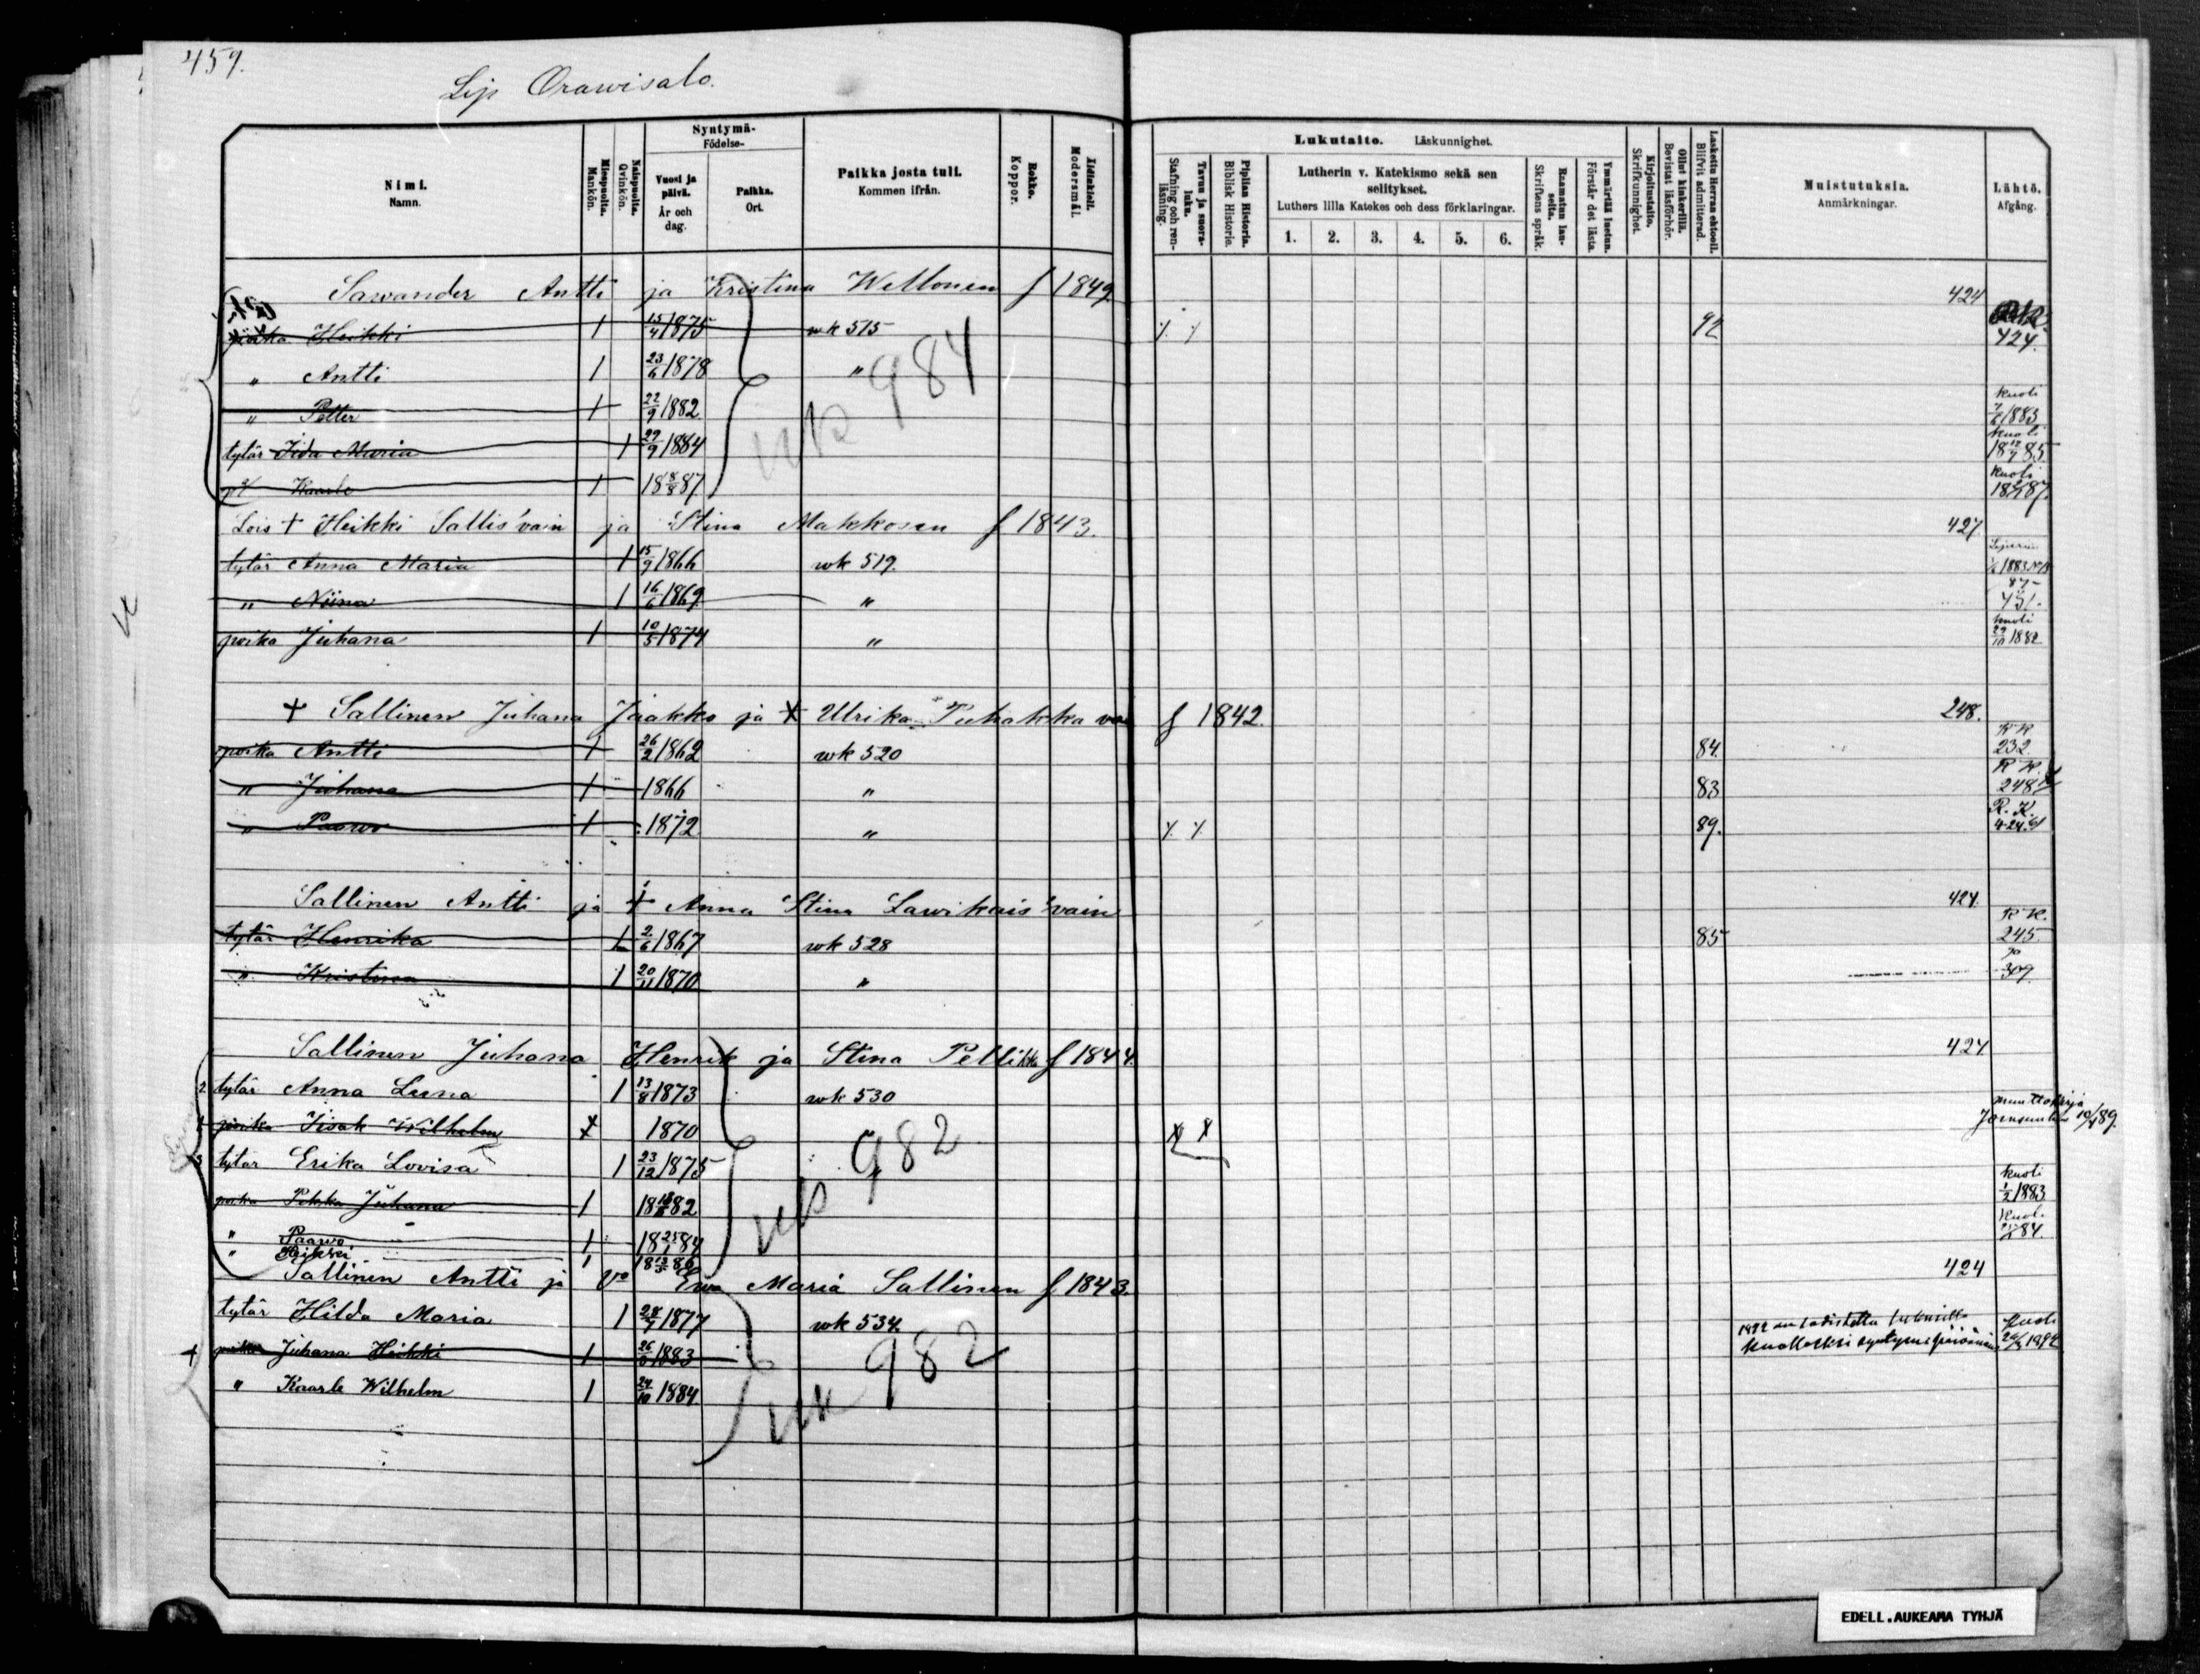 459.
Lip Orawisalo.
Nimi. Namn.
Miespuolia. Mankön.
Naispuolia. Qvinkön.
Syntymä- Födelse-
Vuosi ja päivä. År och dag.
Paikka. Ort.
Paikka josta tuli. Kommen ifrån.
Rokko. Koppor.
Äidinkieli. Modersmål.
Lukutaito. Läskunnighet.
Tavuu ja suora-luku. Stafning och ren-läsning.
Piplian Historia. Biblisk Historie.
Lutherin v. Katekismo sekä sen selitykset.
Luthers lilla Katekes och dess förklaringar.
1. 2. 3. 4. 5. 6.
Raamatun lau-seita. Skriftens språk.
Ymmärtää luetun. Förstår det lästa.
Kirjoitustaito. Skrifkunnighet.
Ollut kinkerillä. Bevistat läsförhör.
Laskettu Herran ehtooll. Blifvit admitterad.
Muistutuksia. Anmärkningar.
Lähtö. Afgång.
Sawander Antti ja Kristina Wellonen f 1849 424
poika Heikki 1 15/4 1875 wk 515 92 424.
" Antti 1 23/6 1878 "
wk 984
" Petter 1 22/9 1882 kuoli 7/6 1883
tytär Iida Maria 1 29/9 1884 kuoli 18 85
p/ Kaarle 1 18 87 kuoli 18 87
Lois + Heikki Sallis'vain ja Stina Makkosen f 1843. 427.
tytär Anna Maria 1 15/9 1866 wk 519. 1883
" Niina 1 16/6 1869 " 451.
poika Juhana 1 10/5 1874 " kuoli 29/10 1882
+ Sallinen Juhana Jaakko ja + Ulrika Puhakka f 1842. 248.
poika Antti 1 26/2 1862 wk 520 84. RK 232.
" Juhana 1 1866 " 83 RK. 248
" Paawo 1 1872 " 89. R.K. 424
Sallinen Antti ja + Anna Stina Lawikais'vain 424.
tytär Henrika 1 2/6 1867 wk 528 85 RK. 245
" Kristina 1 20/11 1870 " 309
Sallinen Juhana Henrik ja Stina Pellikka f 1844. 424
2 tytär Anna Leena 1 13/8 1873 wk 530
poika Iisak Wilhelm 1870 muuttokirja Joensuuhun 10/4 89.
3 tytär Erika Lovisa 1 23/12 1875 "
wk 982
poika Pekka Juhana 1 18 82 kuoli 1/2 1883
" Paawo 1 18 84 Kuol. 84.
" Heikki 1 18 86
Sallinen Antti ja Vo Ewa Maria Sallinen f 1843. 424
tytär Hilda Maria 1 28/7 1877 wk 534.
+ poika Juhana Heikki 1 26/6 1883 kuolleeksi kuoli 1892
wk 982
" Kaarle Wilhelm 1 24/10 1884
EDELL.AUKEAMA TYHJÄ